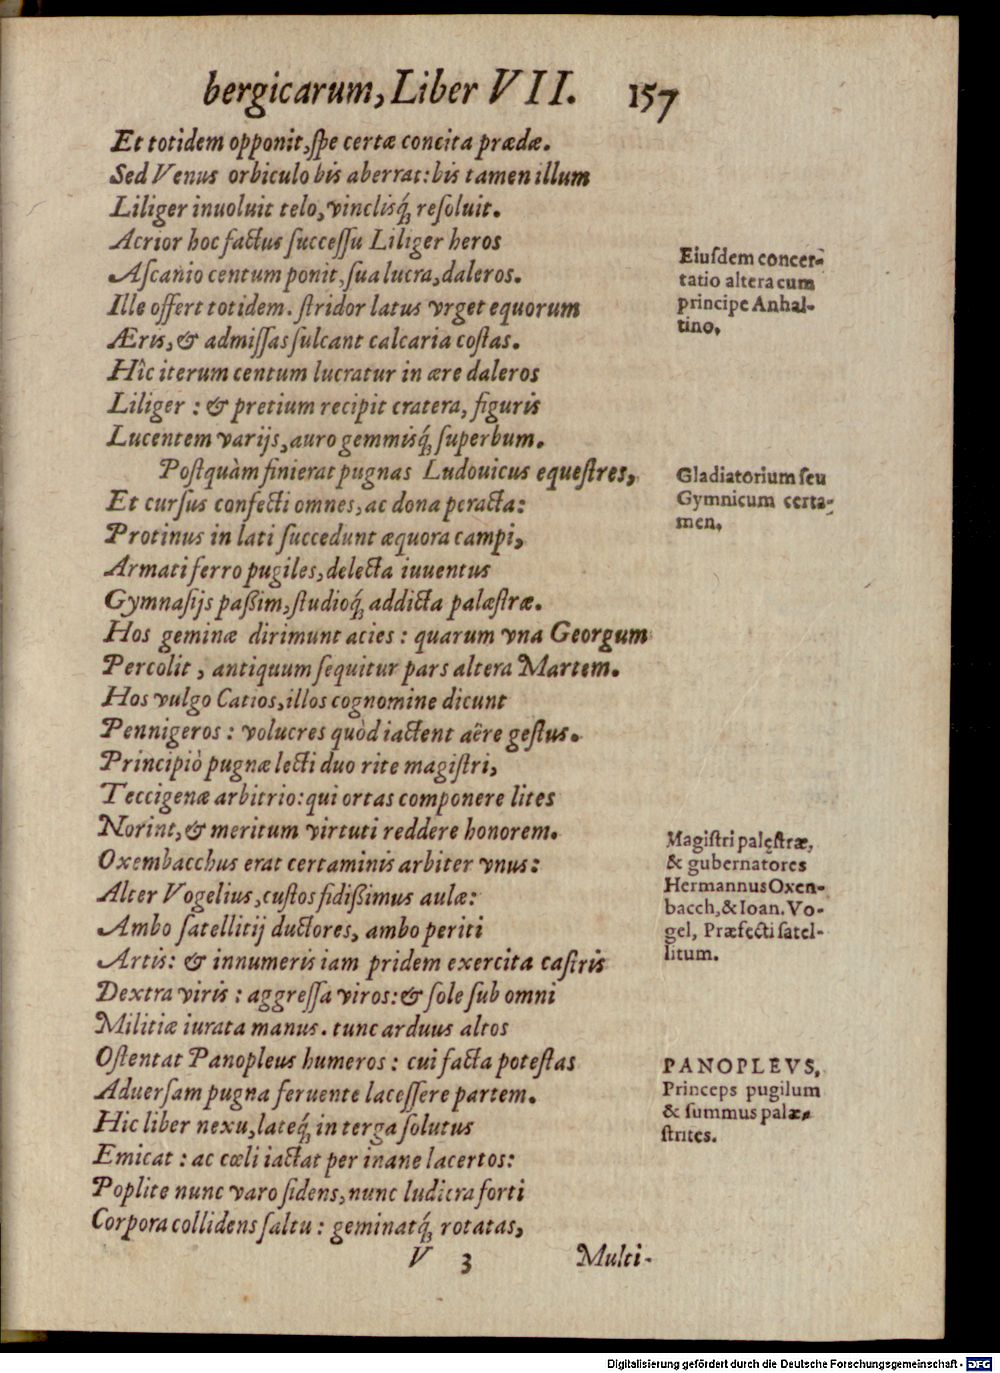 bergicarum, Liber VII. 157
Et totidem opponit, ſpe certæ concita prædæ.
Sed Venus orbiculo bis aberrat: bis tamen illum
Liliger inuoluit telo, vinclisq́; reſoluit.
Acrior hoc factus ſucceſſu Liliger heros
Aſcanio centum ponit, ſua lucra, daleros.
Ille offert totidem. ſtridor latus vrget equorum
Æris, & admiſſas ſulcant calcaria coſtas.
Hîc iterum centum lucratur in ære daleros
Liliger: & pretium recipit cratera, figuris
Lucentem varijs, auro gemmisq́; ſuperbum.
Eiuſdem concer-
tatio altera cum
principe Anhal-
tino.
Poſtquàm finierat pugnas Ludouicus equeſtres,
Et curſus confecti omnes, ac dona peracta:
Protinus in lati ſuccedunt æquora campi,
Armati ferro pugiles, delecta iuuentus
Gymnaſijs paßim, ſtudioq́; addicta palæſtræ.
Hos geminæ dirimunt acies: quarum vna Georgum
Percolit, antiquum ſequitur pars altera Martem.
Hos vulgo Catios, illos cognomine dicunt
Pennigeros: volucres quòd iactent aëre geſtus.
Principiò pugnæ lecti duo rite magiſtri,
Teccigenæ arbitrio: qui ortas componere lites
Norint, & meritum virtuti reddere honorem.
Gladiatorium ſeu
Gymnicum certa-
men.
Oxembacchus erat certaminis arbiter vnus:
Alter Vogelius, cuſtos fidißimus aulæ:
Ambo ſatellitij ductores, ambo periti
Artis: & innumeris iam pridem exercita caſtris
Dextra viris: aggreſſa viros: & ſole ſub omni
Militiæ iurata manus. tunc arduus altos
Magiſtri palęſtræ,
& gubernatores
Hermannus Oxen-
bacch, & Ioan. Vo-
gel, Præfecti ſatel-
litum.
Oſtentat Panopleus humeros: cui facta poteſtas
Aduerſam pugna feruente laceſſere partem.
Hic liber nexu, lateq́; in terga ſolutus
Emicat: ac cœli iactat per inane lacertos:
Poplite nunc varo ſidens, nunc ludicra forti
Corpora collidens ſaltu: geminatq́; rotatas,
PANOPLEVS,
Princeps pugilum
& ſummus palæ-
ſtrites.
V 3 Multi-
Digitalisierung gefördert durch die Deutsche Forschungsgemeinschaft - DFG